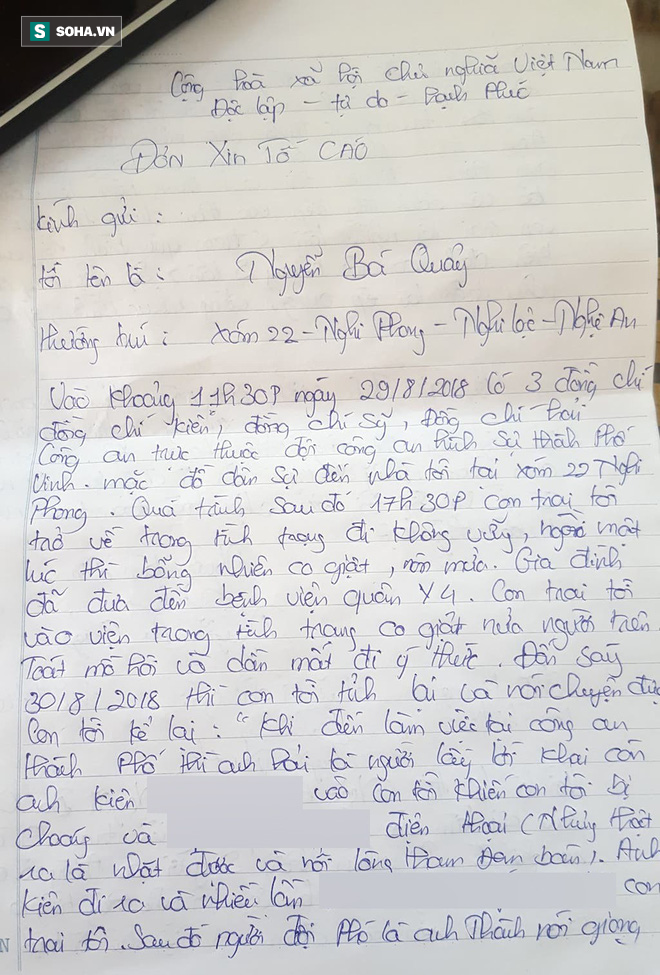 SOHA.VN
Cộng hoà xã hội chủ nghĩa Việt Nam
Độc lập - tự do - hạnh phúc
ĐƠN XIN TỐ CÁO
Kính gửi :
tôi tên là : Nguyễn Bá Quảy
thường trú : xóm 22 - Nghi Phong - Nghi Lộc - Nghệ An
Vào khoảng 11h30P ngày 29/8/2018 Có 3 đồng chí
đồng chí "kiên", đồng chí Sỹ, Đồng chí hải
Công an trực thuộc đội công an hình sự thành phố
Vinh. mặc đồ dân sự đến nhà tôi tại xóm 22 Nghi
Phong. Quá trình sau đó 17h30P con trai tôi
trở về trong tình trạng đi không vững, ngồi một
lúc thì bỗng nhiên co giật, nôn mửa. Gia đình
đã đưa đến bệnh viện quân Y4. Con trai tôi
vào viện trong tình trạng co giật nửa người trên
Toát mồ hôi và dần mất đi ý thức. Đến sáng
30/8/2018 thì con tôi tỉnh lại và nói chuyện được
Con tôi kể lại : "Khi đến làm việc tại công an
thành phố thì anh hải là người lấy lời khai còn
anh kiên vào con tôi khiến con tôi bị
choáng và điện thoại (Nhưng thật
ra là nhặt được và nổi lòng tham đem bán). Anh
kiên đi ra và nhiều lần con
trai tôi. Sau đó người đội phó là anh Thành nói giọng